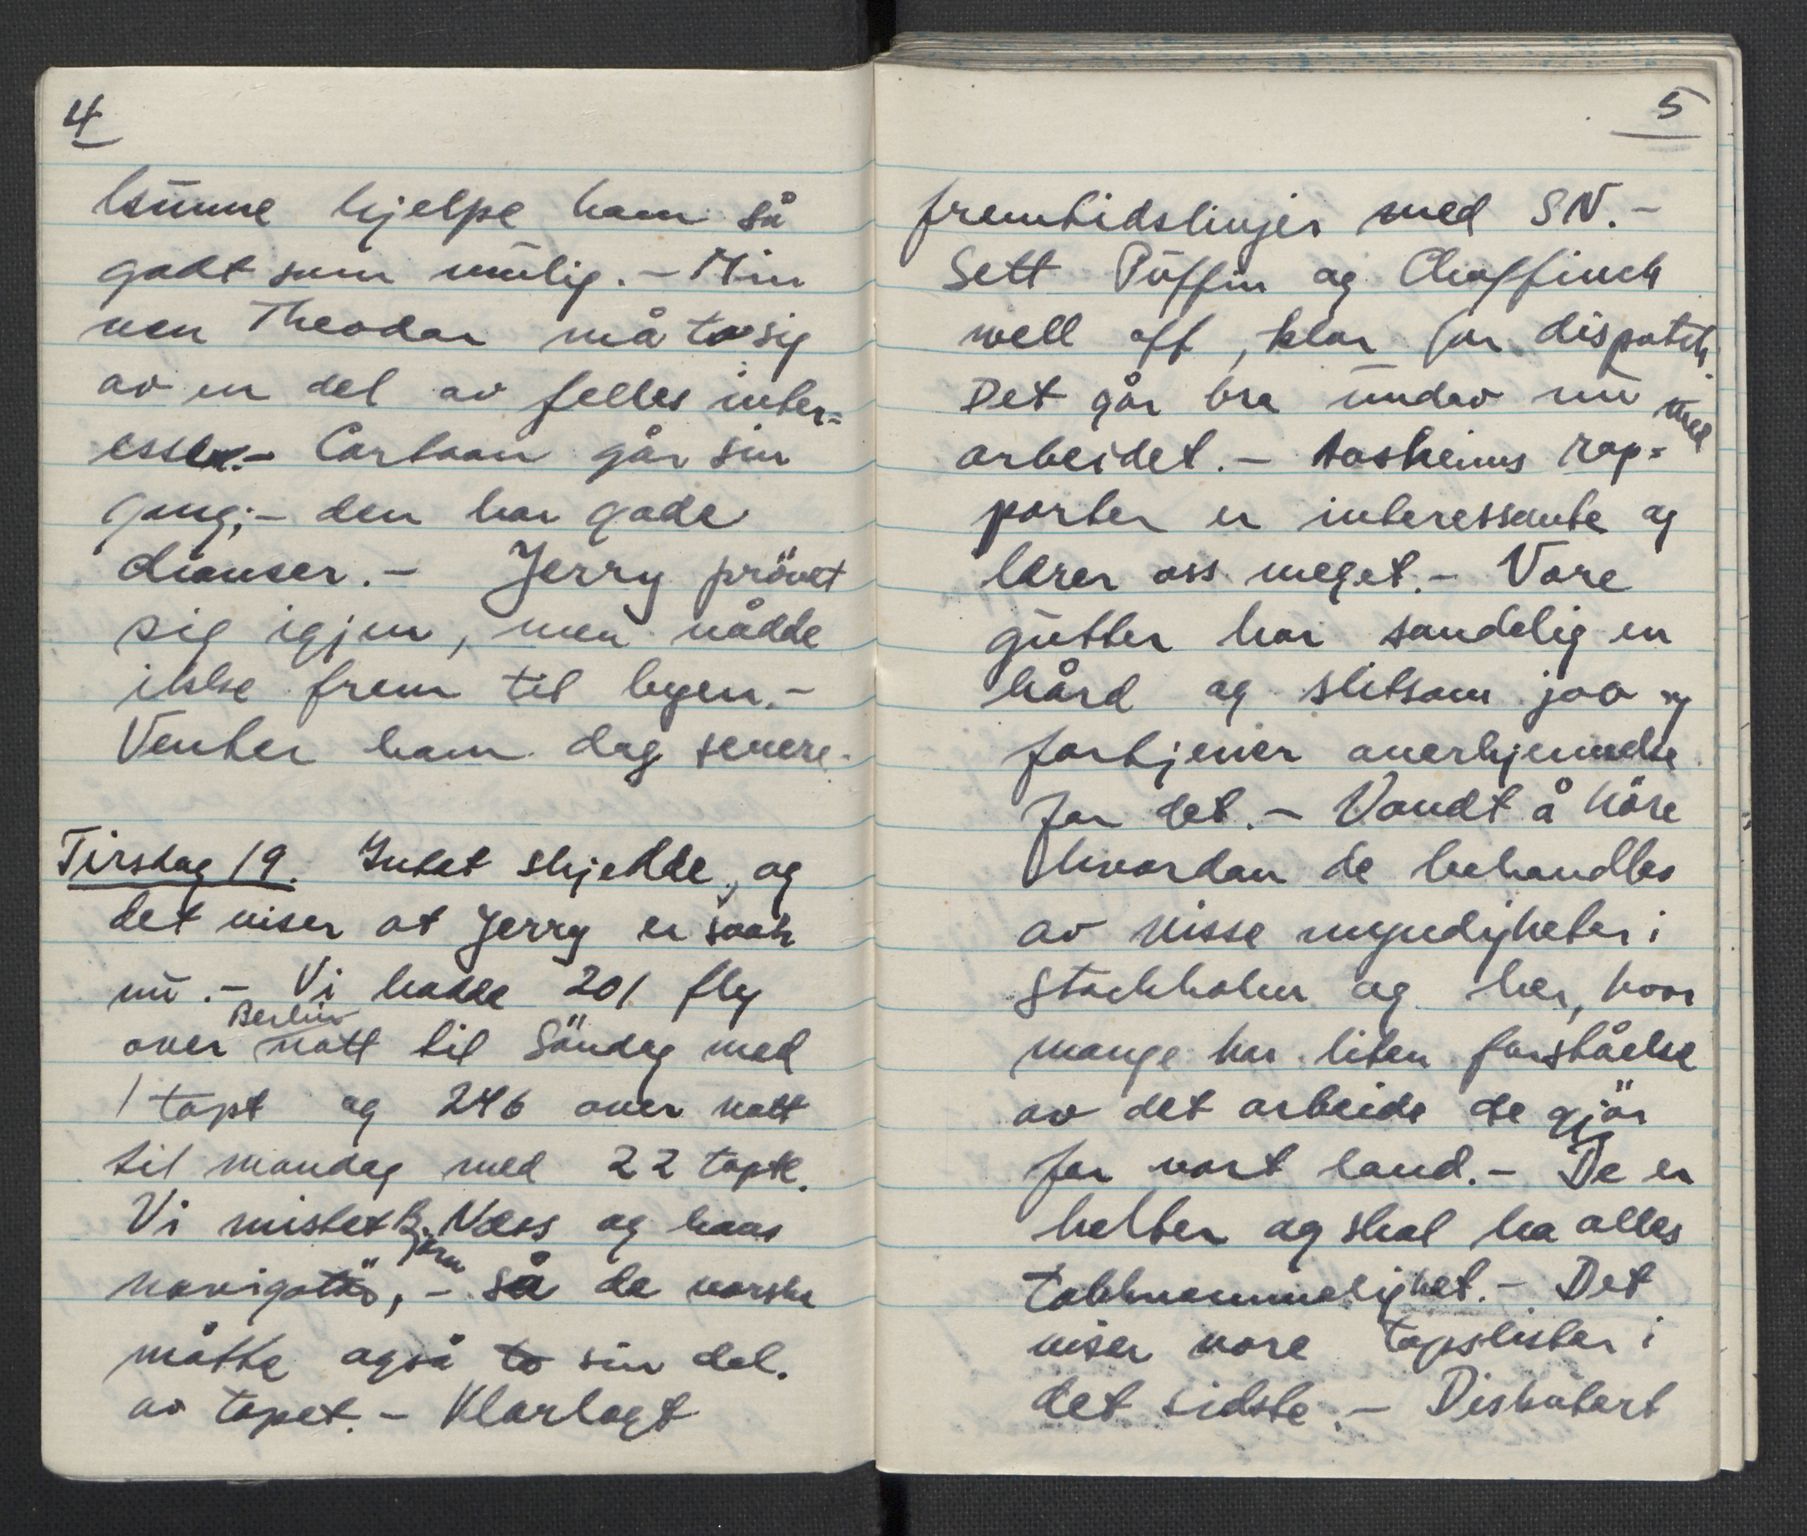 4
kunne hjelpe ham så
godt som mulig. - Min
ven Theodor må ta sig
av en del av felles inter=
esser. - Cartoon går sin
gang; - den har gode
chanser. - Jerry prövet
sig igjen, men nådde
ikke frem til byen. -
Venter ham dag senere.
Tirsdag 19. Intet skjedde, og
det viser at Jerry er svak
nu. - Vi hadde 201 fly
over Berlin natt til Söndag med
1 tapt og 246 over natt
til mandag med 22 tapte.
Vi mistet Bjørn Næss og hans
navigatör, - så de norske
måtte også ta sin del.
av tapet. - Klarlagt
5
fremtidslinjer med SN. -
Sett Puffin og Chaffinch
well off, klar for dispatch.
Det går bra undav nu med
arbeidet. - Aasheims rap=
porter er interessante og
lærer oss meget. - Vore
gutter har sandelig en
hård og slitsom job og
fortjener anerkjennelse
for det. - Vondt å höre
hvordan de behandles
av visse myndigheter i
Stockholm og her, hvor
mange har liten forståelse
av det arbeide de gjör
for vort land. - De er
helter og skal ha alles
takknemmelighet. - Det
viser vore tapslister i
det sidste. - Diskutert